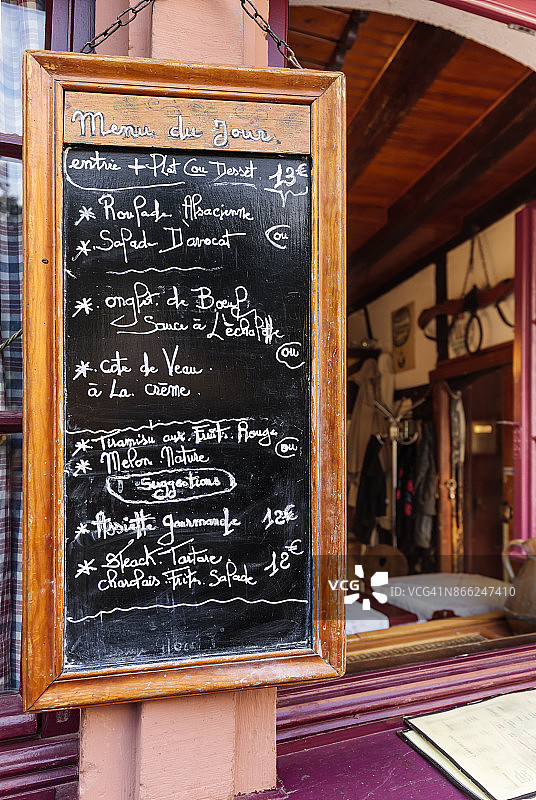 Menu du Jour
entrée + Plat (ou Dessert 13€
* Roulade Alsacienne
ou
* Salade D'avocat
* onglet de Bœuf
Sauce à L'échalotte
ou
* côte de Veau
à La crème
* Tiramisu aux Fruits Rouge
ou
* Melon Nature
Suggestions
* Assiette gourmande 12€
* Steack Tartare 18€
charolais Frits Salade
VCG
VCG41N866247410